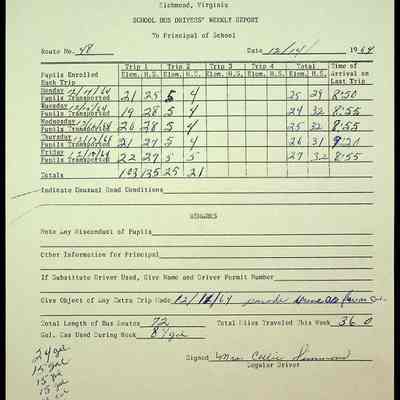 Richmond, Virginia
SCHOOL BUS DRIVERS' WEEKLY REPORT
To Principal of School
Route No. 48 Date 12/14/ 1964
Trip 1 Trip 2 Trip 3 Trip 4 Total Time of
Pupils Enrolled Elem. H.S. Elem. H.S. Elem. H.S. Elem. H.S. Elem. H.S. Arrival on
Each Trip Last Trip
Monday 12/14/64
Pupils Transported 21 25 5 4 25 29 8:50
Tuesday
Pupils Transported 19 28 5 4 24 32 8:55
Wednesday
Pupils Transported 20 28 5 4 25 32 8:55
Thursday
Pupils Transported 21 27 5 4 26 31 9:20
Friday
Pupils Transported 22 27 5 5 27 32 8:55
Totals 103 135 25 21
Indicate Unusual Road Conditions
REMARKS
Note Any Misconduct of Pupils
Other Information for Principal
If Substitute Driver Used, Give Name and Driver Permit Number
Give Object of Any Extra Trip Made 12/12/64 parade
Total Length of Bus Routes 72 Total Miles Traveled This Week 360
Gal. Gas Used During Week 84 gal
Signed Mrs.
Regular Driver
24 gal
15 gal
15
15